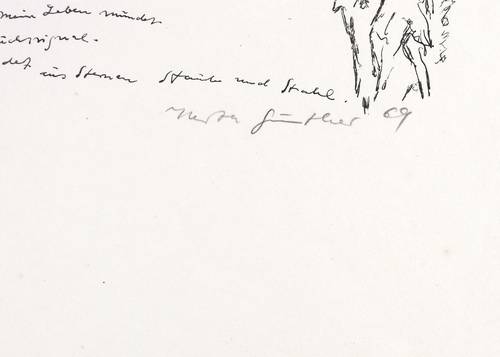 mein Leben mündet
signal.
det, aus Sternen Staub und Strahl.
Herta Günther 69